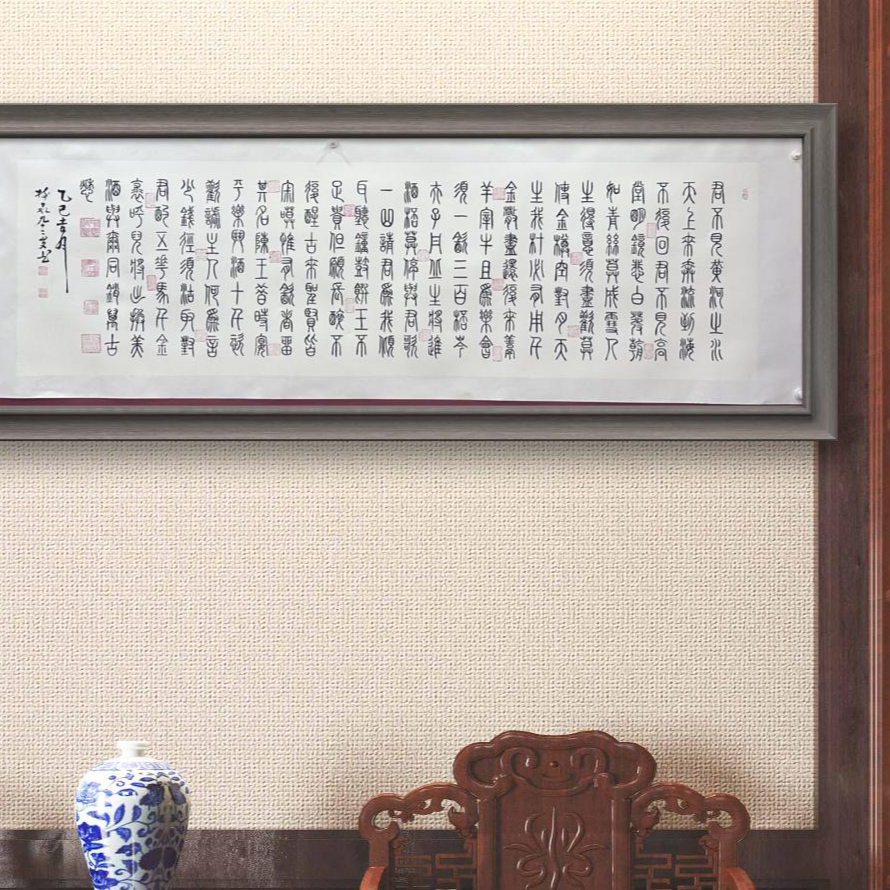 君不見黃河之水
天上來奔流到海
不復回君不見高
堂明鏡悲白髮朝
如青絲莫成雪人
生得意須盡歡莫
使金樽空對月天
生我材必有用千
金散盡還復來烹
羊宰牛且為樂會
須一飲三百杯岑
夫子丹丘生將進
酒杯莫停與君歌
一曲請君為我傾
耳聽鐘鼓饌玉不
足貴但願長醉不
復醒古來聖賢皆
寂寞惟有飲者留
其名陳王昔時宴
平樂斗酒十千恣
歡謔主人何為言
少錢徑須沽取對
君酌五花馬千金
裘呼兒將出換美
酒與爾同銷萬古
愁
乙巳吉月